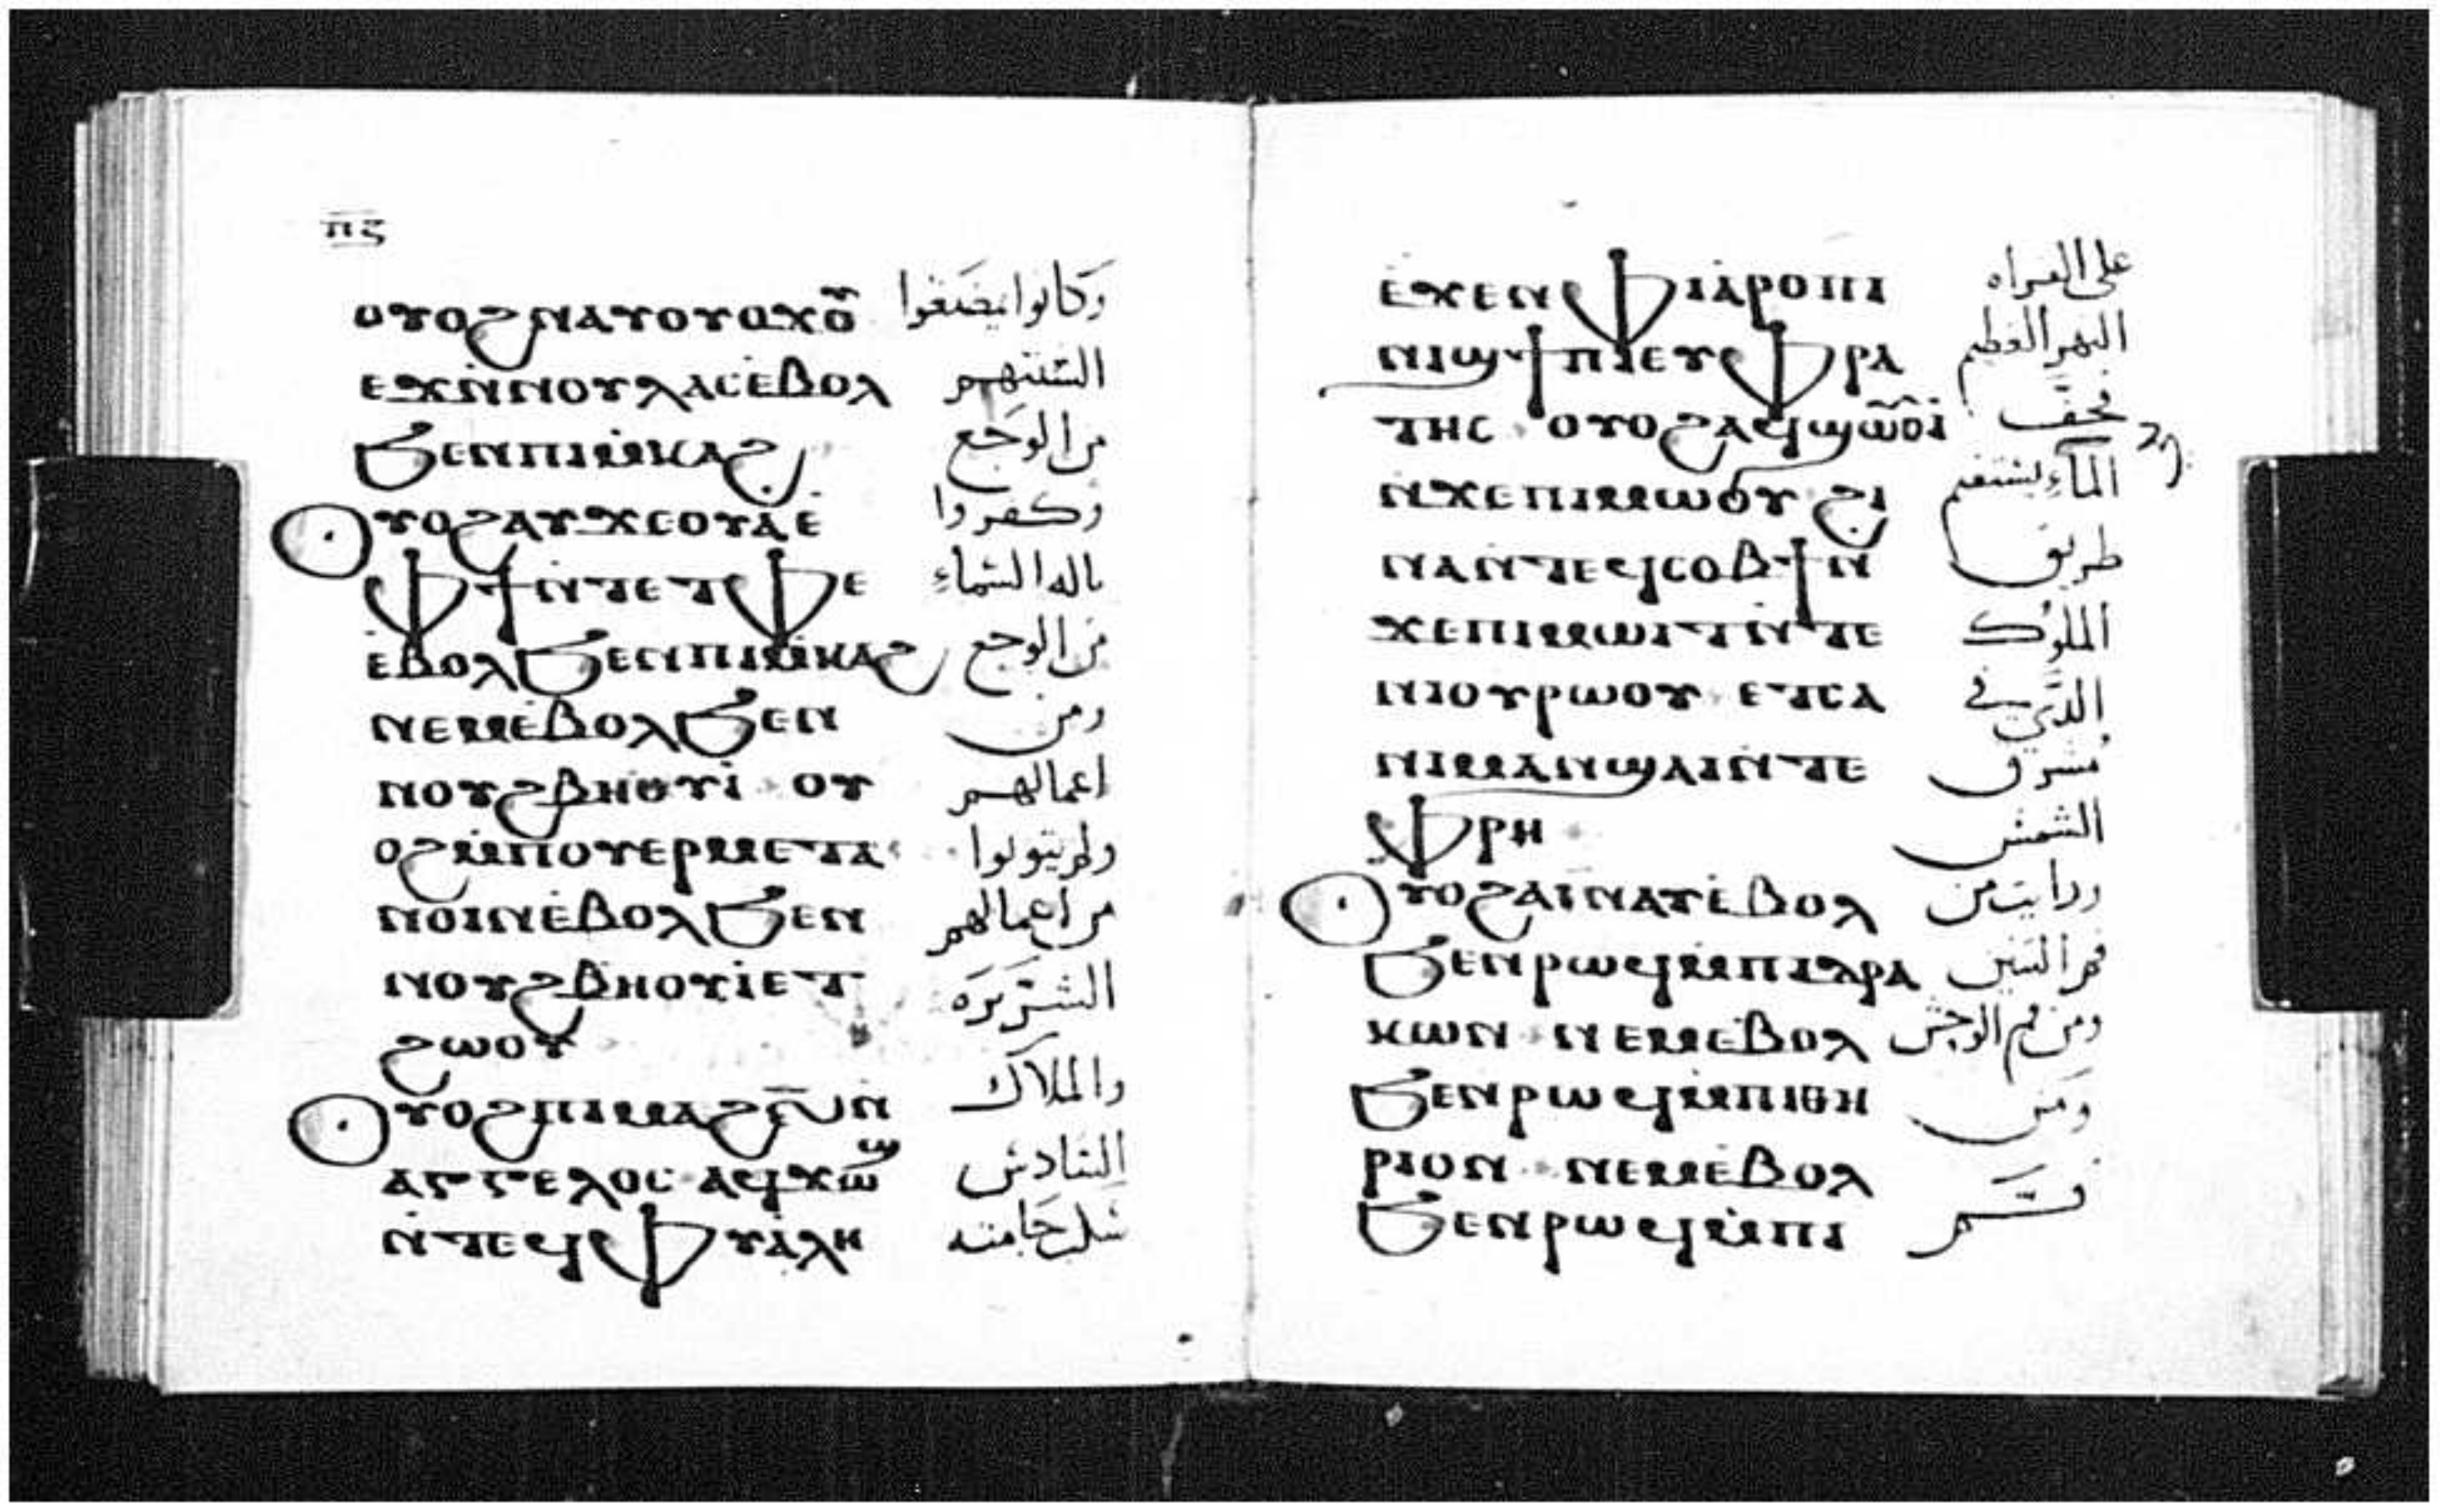 ⲡ̅ⲋ̅
ⲟⲩⲟϩⲛⲁⲩⲟⲩⲟϫⲟ̅ⲩ̅ وكانوا يمضغوا
ⲉϫⲛ̀ⲛⲟⲩⲗⲁⲥⲉ̀ⲃⲟⲗ السنتهم
ϧⲉⲛⲡⲓⲙ̀ⲕⲁϩ من الوجع
ⲟⲩⲟϩⲁⲩϫⲉⲟⲩⲁ̀ⲉ̀ وكفروا
ⲫϯⲛ̀ⲧⲉⲧⲫⲉ باله السماء
ⲉ̀ⲃⲟⲗϧⲉⲛⲡⲓⲙ̀ⲕⲁϩ من الوجع
ⲛⲉⲙⲉ̀ⲃⲟⲗϧⲉⲛ ومن
ⲛⲟⲩϩⲃⲏⲟⲩⲓ̀ ⲟⲩ اعمالهم
ⲟϩⲙ̀ⲡⲟⲩⲉⲣⲙⲉⲧⲁ ولم يتولوا
ⲛⲟⲓⲛⲉ̀ⲃⲟⲗϧⲉⲛ من اعمالهم
ⲛⲟⲩϩⲃⲏⲟⲩⲓ̀ⲉⲧ الشريره
ϩⲱⲟⲩ
ⲟⲩⲟϩⲡⲓⲙⲁϩⲋ̅ⲛ̀ والملاك
ⲁⲅⲅⲉⲗⲟⲥ ⲁϥϫⲱϣ السادس
ⲛ̀ⲧⲉϥⲫⲩⲁ̀ⲗⲏ سكب جامته
ⲉ̀ϫⲉⲛⲫⲓⲁ̀ⲣⲟⲡⲓ على الفراه
ⲛⲓϣϯⲡⲓⲉⲩⲫⲣⲁ النهر العظيم
ⲧⲏⲥ ⲟⲩⲟϩⲁϥϣⲱⲟⲩⲓ̀ فجف
ⲛ̀ϫⲉⲡⲓⲙⲱⲟⲩ ϩⲓ الماء ليستقيم
ⲛⲁⲛ̀ⲧⲉϥⲥⲟⲃϯⲛ̀ طريق
ϫⲉⲡⲓⲙⲱⲓⲧⲛ̀ⲧⲉ الملوك
ⲛⲓⲟⲩⲣⲱⲟⲩ ⲉⲧⲥⲁ الذي في
ⲛⲓⲙⲁⲛϣⲁⲓⲛ̀ⲧⲉ مشرق
ⲫⲣⲏ الشمس
ⲟⲩⲟϩⲁⲓⲛⲁⲩⲉ̀ⲃⲟⲗ ورايت من
ϧⲉⲛⲣⲱϥⲙ̀ⲡⲓⲇⲣⲁ فم التنين
ⲕⲱⲛ ⲛⲉⲙⲉ̀ⲃⲟⲗ ومن فم الوحش
ϧⲉⲛⲣⲱϥⲙ̀ⲡⲓⲑⲏ ومن
ⲣⲓⲟⲛ ⲛⲉⲙⲉ̀ⲃⲟⲗ فم
ϧⲉⲛⲣⲱϥⲙ̀ⲡⲓ